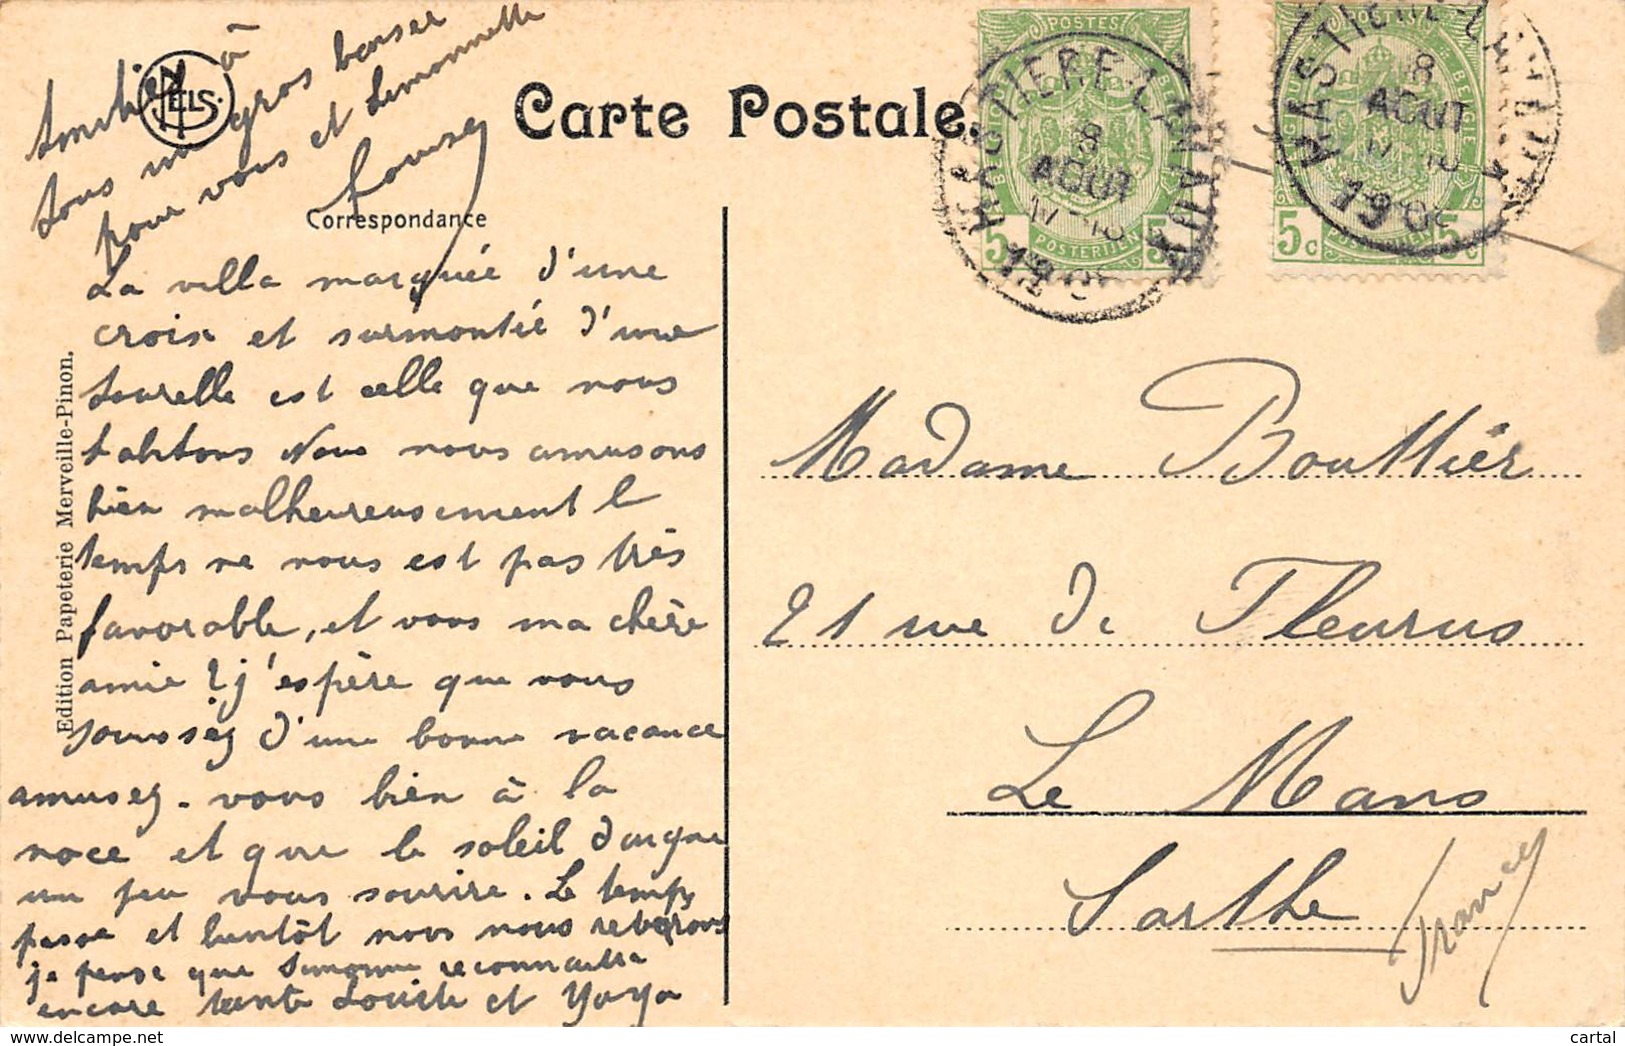 Amitiés à
tous un gros baiser
pour vous et Simonnette
Louise
NELS
Carte Postale.
Correspondance
La villa marquée d'une
croix et surmontée d'une
tourelle est celle que nous
habitons Nous nous amusons
bien malheureusement le
temps ne nous est pas très
favorable, et vous ma chère
amie ? j'espère que vous
jouissez d'une bonne vacance
amusez-vous bien à la
noce et que le soleil daigne
un peu vous sourire. Le temps
passe et bientôt nous nous reverrons
je pense que Simonne reconnaitra
encore tante Louise et Yoyo
Edition Papeterie Merveille-Pinon.
POSTES
BELGIQUE BELGIE
5c POSTERIJEN 5c
HASTIERE-LAVAUX
8
AOUT
190
POSTES
BELGIQUE BELGIE
5c POSTERIJEN 5c
HASTIERE-LAVAUX
8
AOUT
190
Madame Bouttier
21 rue de Fleurus
Le Mans
Sarthe
France
www.delcampe.net
cartal